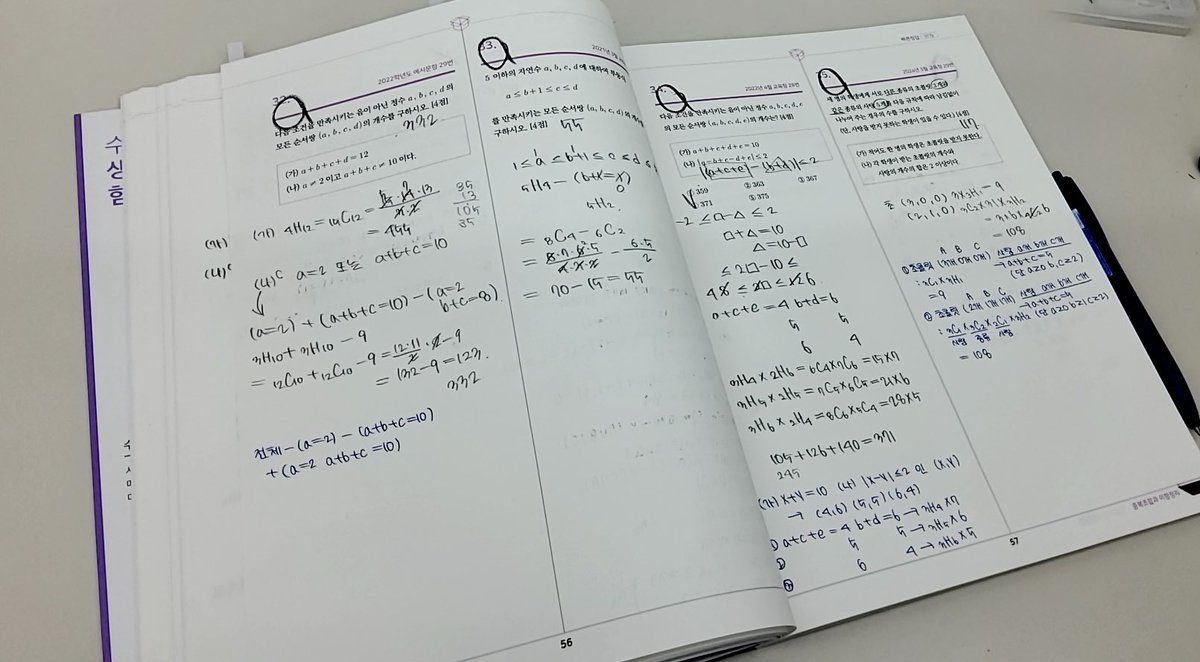 수
생
험
2022학년도 예시문항 29번
다음 조건을 만족시키는 음이 아닌 정수 a, b, c, d의
모든 순서쌍 (a, b, c, d)의 개수를 구하시오. [4점]
332
(가) a+b+c+d=12
(나) a≠2이고 a+b+c≠10이다.
(가) (가) 4H12 = 14C12
= 455
35
13
105
35
(나)ᶜ (나)ᶜ a=2 또는 a+b+c=10
(a=2) + (a+b+c=10) - (a=2
b+c=8)
3H10 + 3H10 - 9
= 12C10 + 12C10 - 9 = 12·11/2 ·2 - 9
= 132-9 = 123.
332
전체 - (a=2) - (a+b+c=10)
+ (a=2 a+b+c=10)
56
33.
5 이하의 자연수 a, b, c, d에 대하여 부등식
a ≤ b+1 ≤ c ≤ d
를 만족시키는 모든 순서쌍 (a, b, c, d)의 개
구하시오. [4점]
55
1 ≤ a ≤ b+1 ≤ c ≤ d ≤
5H4 -
5H2
= 8C4 - 6C2
= 8·7·6·5 - 6·5/2
= 70 - 15 = 55
2022년 4월 교육청 29번
다음 조건을 만족시키는 음이 아닌 정수 a, b, c, d, e
의 모든 순서쌍 (a, b, c, d, e)의 개수는? [4점]
(가) a+b+c+d+e=10
(나) |a-b+c-d+e|≤2
|(a+c+e) - (b+d)| ≤ 2
359 ② 363 ③ 367
371 ⑤ 375
-2 ≤ □-△ ≤ 2
□+△=10
△=10-□
≤ 2□-10 ≤
a+c+e = 4 b+d=6
5 5
6 4
3H4 × 2H6 = 6C4×7C6 = 15×7
3H5 × 2H5 = 7C5×6C5 = 21×6
3H6 × 2H4 = 8C6×5C4 = 28×5
105+126+140 = 371
245
(가) X+Y=10 (나) |X-Y|≤2 인 (X,Y)
→ (4,6) (5,5) (6,4)
① a+c+e = 4 b+d=6 → 3H4 × 7
5 5 → 3H5 × 6
6 4 → 3H6 × 5
빠른정답
2024년 5월 교육청 29번
세 명의 학생에게 서로 다른 종류의 초콜릿 3개와
같은 종류의 사탕 5개를 다음 규칙에 따라 남김없이
나누어 주는 경우의 수를 구하시오.
(단, 사탕을 받지 못하는 학생이 있을 수 있다.) [4점]
117.
(가) 적어도 한 명의 학생은 초콜릿을 받지 못한다.
(나) 각 학생이 받는 초콜릿의 개수와
사탕의 개수의 합은 2 이상이다.
초 (3,0,0) 3×3H1 = 9
(2,1,0) 3C2×3!×3H2
= 3×6×6
= 108
A B C 사탕 a개 b개 c개
① 초콜릿 (3개 0개 0개) → a+b+c=5
: 3C1×3H1
= 9
A B C 사탕 a개 b개 c개
② 초콜릿 (2개 1개) → a+b+c=5
(단 a≥0 b≥1 c≥2)
: 3C1×3C2×2C1×3H2
사람 종류 사람
= 108
중복조합과 이항정리
57